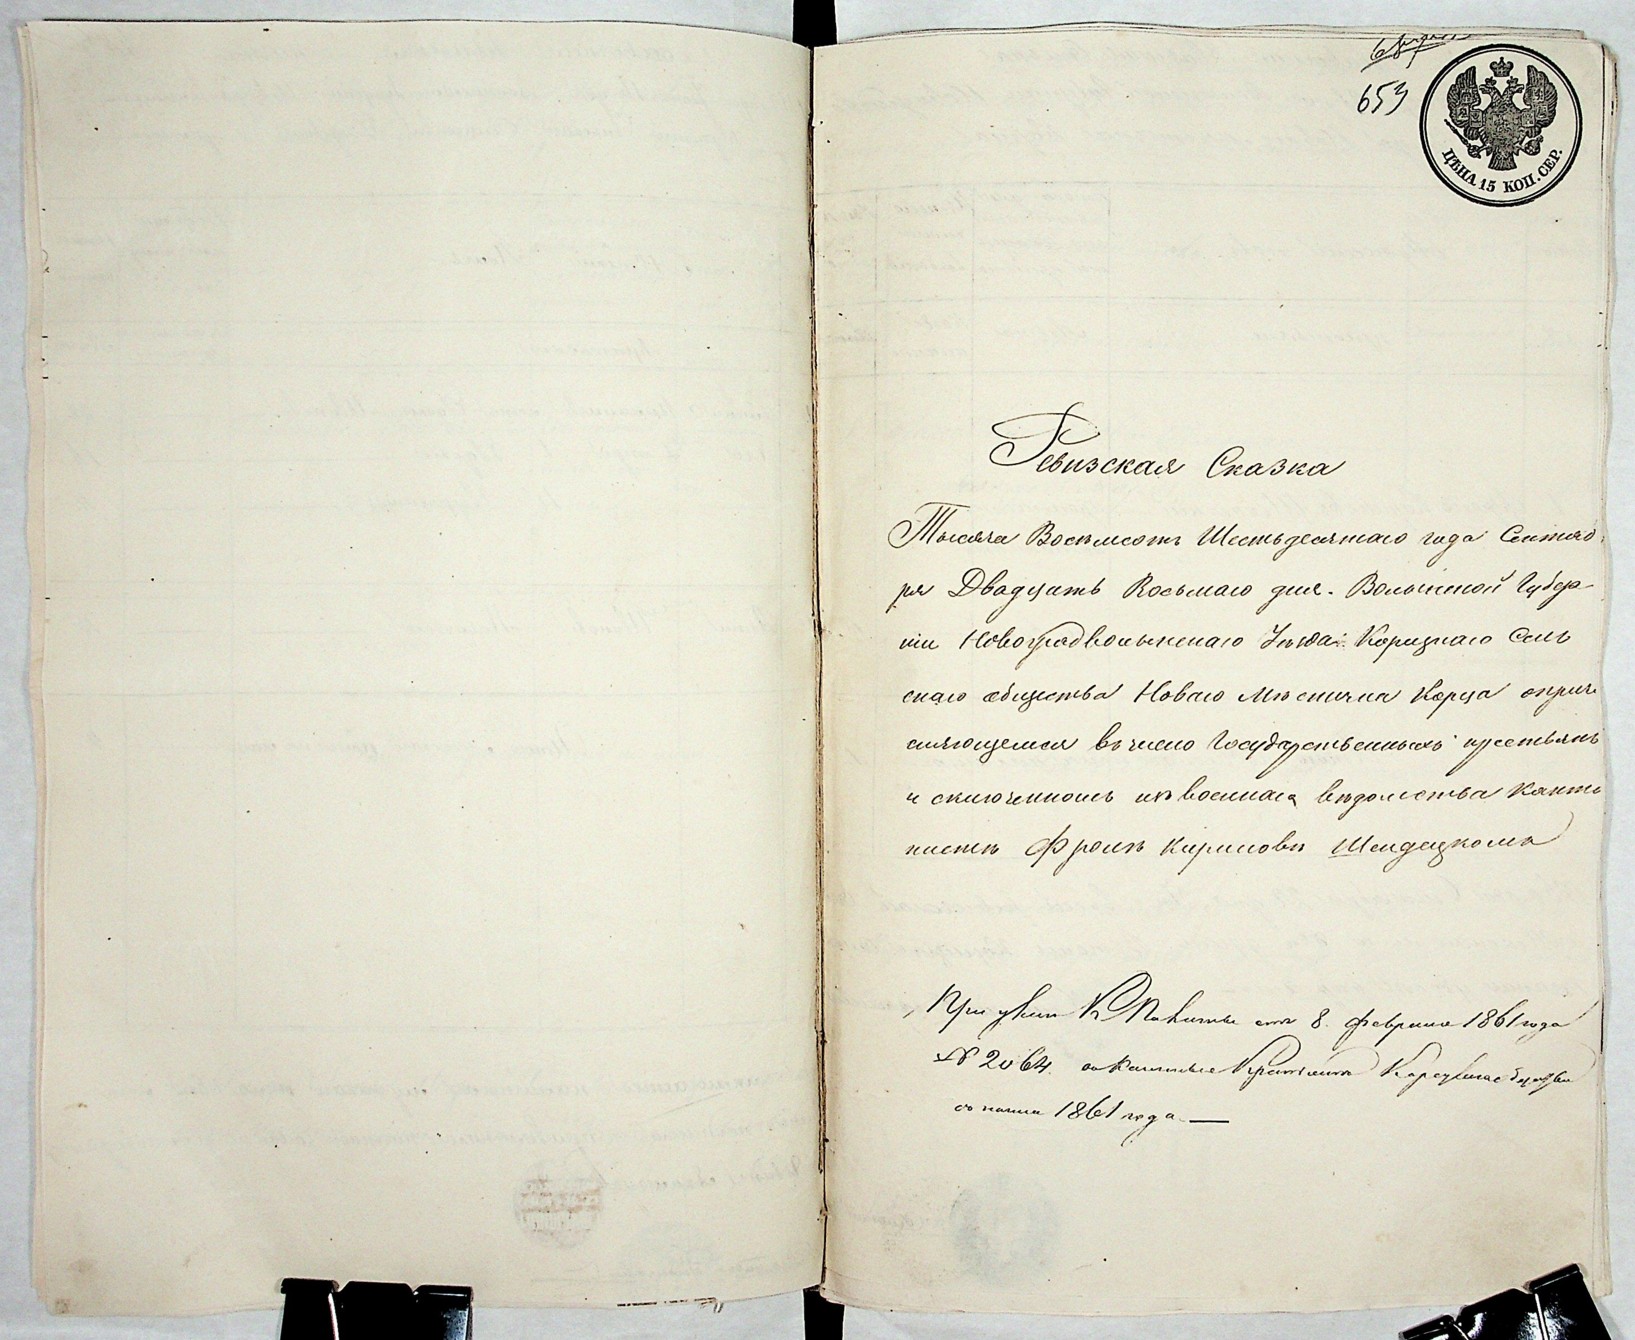 653
ЦѢНА 15 КОП. СЕР.
Ревизская Сказка
Тысяча Восемсотъ Шестьдесятаго года Сентяб
ря Двадцать Восьмаго дня. Волынской Губер
ніи Новоградволынскаго Уѣзда Корецкаго Сель
скаго общества Новаго Мѣстичка Корца о причи
сляющемся въ число Государственныхъ крестьянъ
и сключенномъ изъ военнаго вѣдомства Канто
нистѣ Фролѣ Кириловѣ Шендецкомъ
При указѣ К Палаты отъ 8. февраля 1861 года
№ 2064.
1861 года